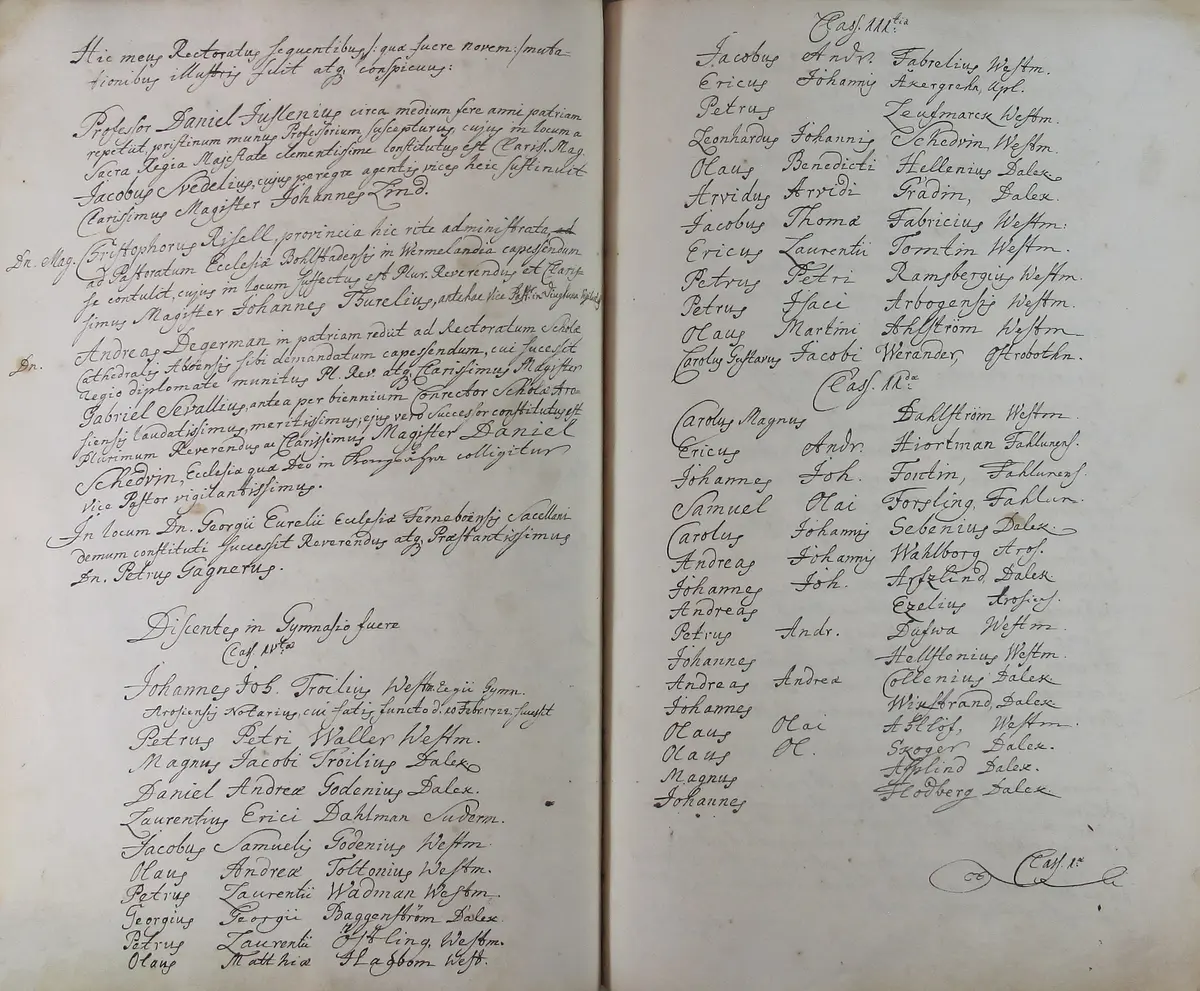 Hic meus Rectoratus sequentibus /: quæ fuere novem :/ muta-
tionibus illustris fuit atq. conspicuus:
Professor Daniel Juslenius circa medium fere anni patriam
repetiit pristinum munus Professorium suscepturus, cujus in locum a
Sacra Regia Majestate clementissime constitutus est Clariss. Mag.
Jacobus Svedelius, cujus peregre agentis vices heic sustinuit
Clarissimus Magister Johannes Lind.
Dn. Mag. Christophorus Risell, provincia hic rite administrata, ad
ad Pastoratum Ecclesiæ Bohlstadensis in Wermelandia capessendum
se contulit, cujus in locum suffectus est Plur. Reverendus et Claris-
simus Magister Johannes Thurelius, antehac Vice Past. in
Dn. Andreas Degerman in patriam rediit ad Rectoratum Scholæ
Cathedralis Aboensis sibi demandatum capessendum, cui sucessit
regio diplomate munitus Pl. Rev. atq. Clarissimus Magister
Gabriel Sevallius, antea per biennium Conrector Scholæ Aro-
siensis laudatissimus, meritissimus, ejus vero successor constitutus est
Plurimum Reverendus ac Clarissimus Magister Daniel
Schedvin, Ecclesiæ quæ Deo in Kongsåhra colligitur
vice Pastor vigilantissimus.
In locum Dn. Georgii Eurelii Ecclesiæ Ferneboënsis Sacellani
demum constituti successit Reverendus atq. Præstantissimus
Dn. Petrus Gagnerus.
Discentes in Gymnasio fuere
Class. IV.ta
Johannes Joh. Troilius Westm. Regii Gymn.
Arosiensis Notarius, cui fatis functo d. 10 Febr. 1722. sucessit
Petrus Petri Waller Westm.
Magnus Jacobi Troilius Dalek.
Daniel Andreæ Godenius Dalek.
Laurentius Erici Dahlman Suderm.
Jacobus Samuelis Godenius Westm.
Olaus Andreæ Toltonius Westm.
Petrus Laurentii Wadman Westm.
Georgius Georgii Baggenström Dalek.
Petrus Laurentii Östling, Westm.
Olaus Matthiæ Hagbom West.
Class. III.tia
Jacobus Andr. Fabrelius Westm.
Ericus Johannis Åkergrehn, Upl.
Petrus Leufmarck Westm.
Leonhardus Johannis Schedvin, Westm.
Olaus Benedicti Hellenius Dalek.
Arvidus Arvidi Grådin, Dalek.
Jacobus Thomæ Fabricius Westm:
Ericus Laurentii Tomtin Westm.
Petrus Petri Ramsbergius Westm.
Petrus Isaci Arbogensis Westm.
Olaus Martini Ahlström Westm
Carolus Gustavus Jacobi Werander, Ostrobothn.
Class. II.da
Carolus Magnus Dahlström Westm.
Ericus Andr. Hiortman Fahlunens.
Johannes Joh. Fontin, Fahlunens.
Samuel Olai Forsling, Fahlun.
Carolus Johannis Sebenius Dalek.
Andreas Johannis Wahlborg Aros.
Johannes Joh. Arfzlind Dalek.
Andreas Ezelius Arosiens.
Petrus Andr. Dufwa Westm.
Johannes Hellstenius Westm.
Andreas Andreæ Collenius Dalek
Johannes Winbrand, Dalek
Olaus Olai Westm.
Olaus Ol. Skoger Dalek.
Magnus Asplind Dalek.
Johannes Hodberg Dalek.
Class. I.a